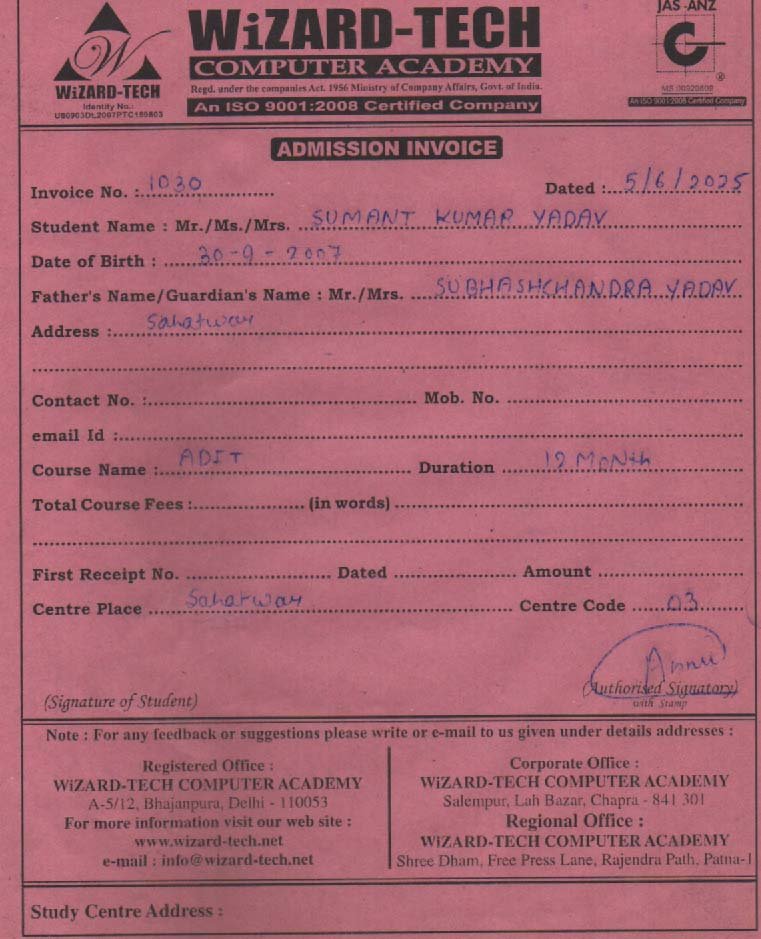 JAS-ANZ
WiZARD-TECH
COMPUTER ACADEMY
Regd. under the companies Act. 1956 Ministry of Company Affairs, Govt. of India.
An ISO 9001:2008 Certified Company
W
WiZARD-TECH
Identity No.:
U80903DL2007PTC169803
C
®
MS 00920809
An ISO 9001:2008 Certified Company
ADMISSION INVOICE
Invoice No. : 1030 Dated : 5/6/2025
Student Name : Mr./Ms./Mrs. SUMANT KUMAR YADAV
Date of Birth : 30-9-2007
Father's Name/Guardian's Name : Mr./Mrs. SUBHASHCHANDRA YADAV
Address : Sahatwar
Contact No. : Mob. No.
email Id :
Course Name : ADIT Duration 12 MoNth
Total Course Fees : (in words)
First Receipt No. Dated Amount
Centre Place Sahatwar Centre Code 03
(Signature of Student) (Authorised Signatory)
with Stamp
Note : For any feedback or suggestions please write or e-mail to us given under details addresses :
Registered Office :
WiZARD-TECH COMPUTER ACADEMY
A-5/12, Bhajanpura, Delhi - 110053
For more information visit our web site :
www.wizard-tech.net
e-mail : info@wizard-tech.net
Corporate Office :
WiZARD-TECH COMPUTER ACADEMY
Salempur, Lah Bazar, Chapra - 841 301
Regional Office :
WiZARD-TECH COMPUTER ACADEMY
Shree Dham, Free Press Lane, Rajendra Path, Patna-1
Study Centre Address :